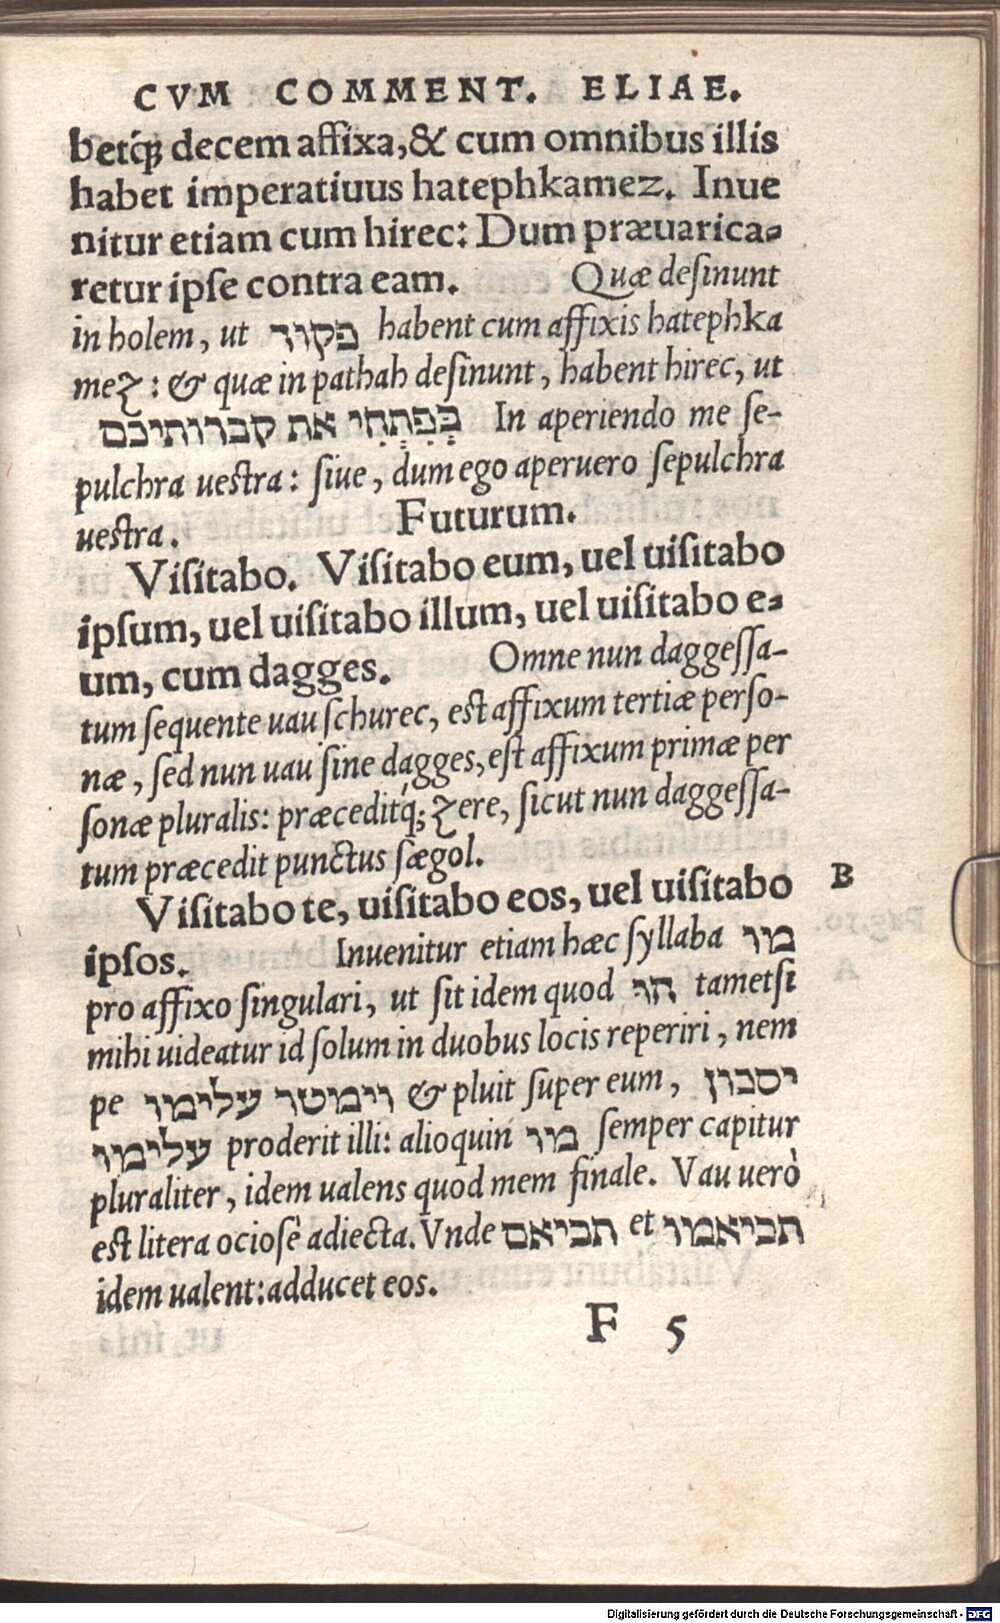 CVM COMMENT. ELIAE.
betq́; decem affixa, & cum omnibus illis
habet imperatiuus hatephkamez. Inue
nitur etiam cum hirec: Dum præuarica-
retur ipse contra eam. Quæ desinunt
in holem, ut פקוד habent cum affixis hatephka
mez: & quæ in pathah desinunt, habent hirec, ut
בְּפִתְחִי את קברותיכם In aperiendo me se-
pulchra uestra: siue, dum ego aperuero sepulchra
uestra. Futurum.
Visitabo. Visitabo eum, uel uisitabo
ipsum, uel uisitabo illum, uel uisitabo e-
um, cum dagges. Omne nun daggessa-
tum sequente uau schurec, est affixum tertiæ perso-
næ, sed nun uau sine dagges, est affixum primæ per
sonæ pluralis: præceditq́; zere, sicut nun daggessa-
tum præcedit punctus sægol.
Visitabo te, uisitabo eos, uel uisitabo B
ipsos. Inuenitur etiam hæc syllaba מו
pro affixo singulari, ut sit idem quod הו tametsi
mihi uideatur id solum in duobus locis reperiri, nem
pe וימטר עלימו & pluit super eum, יסכון
עלימו proderit illi: alioquin מו semper capitur
pluraliter, idem ualens quod mem finale. Vau uerò
est litera ociosè adiecta. Vnde תביאם et תביאמו
idem ualent: adducet eos.
F 5
Digitalisierung gefördert durch die Deutsche Forschungsgemeinschaft - DFG